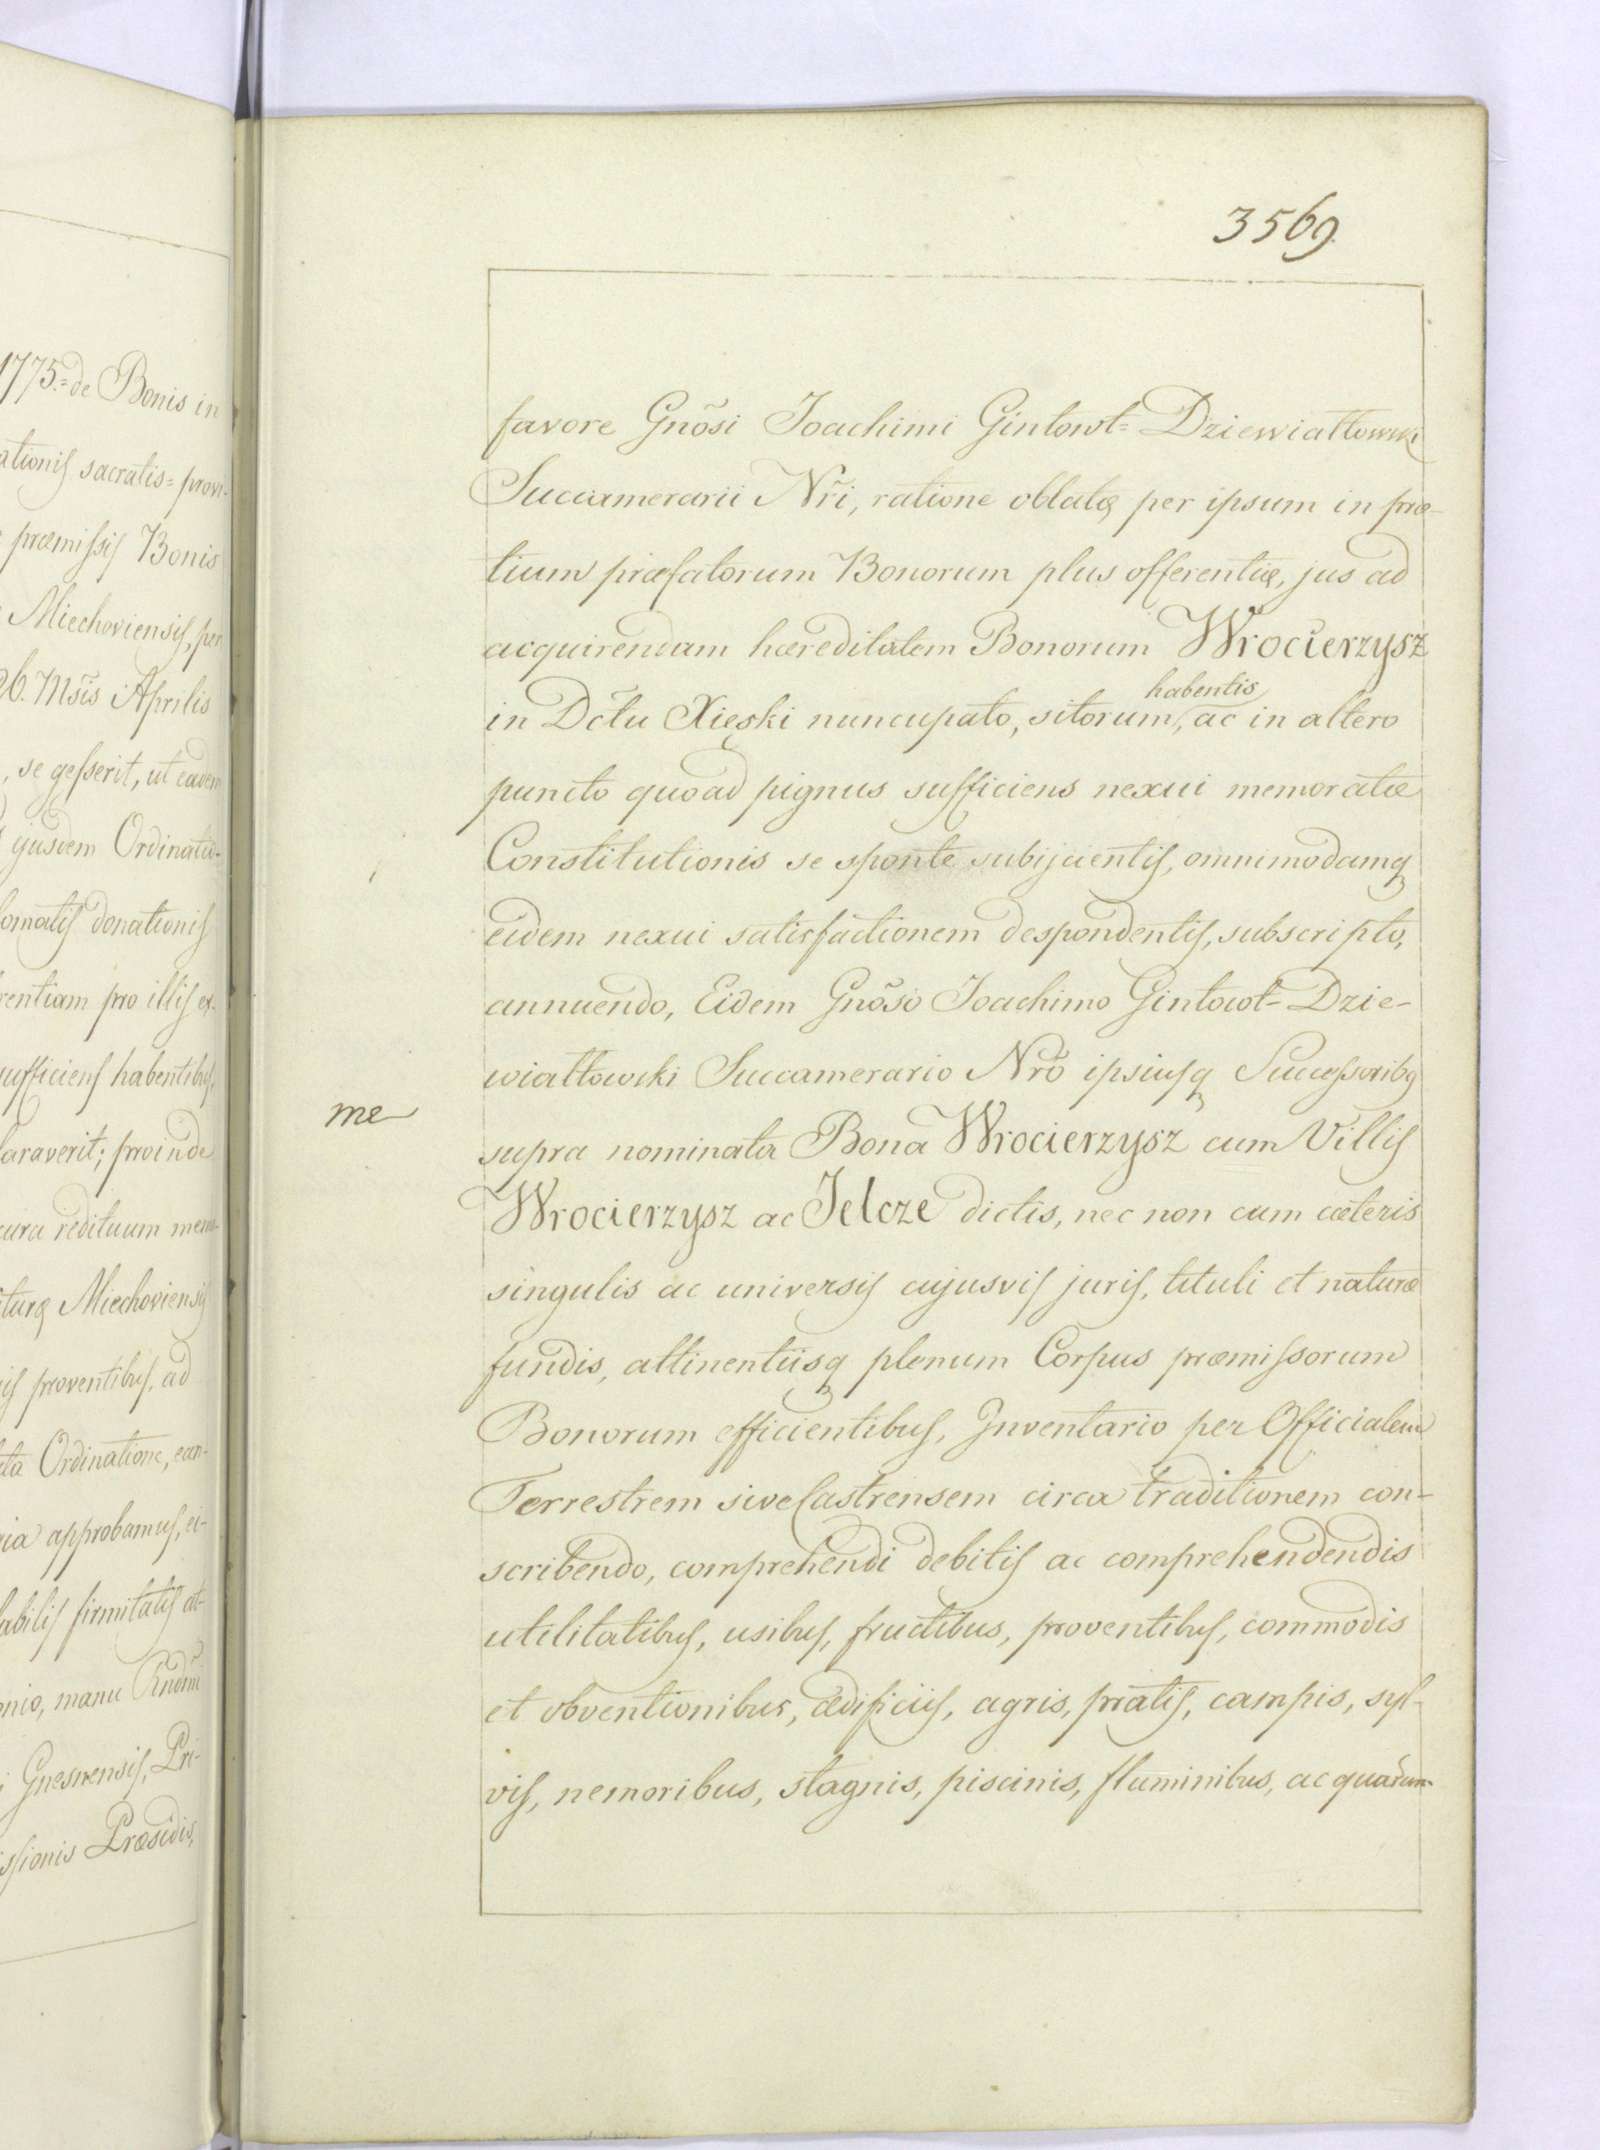 1775.= de Bonis in
ationis sacratis= provi-
præmissis Bonis
Miechoviensis, per
26. Msīs Aprilis
, se gesserit, ut eadem
ejusdem Ordinatio-
lomatis donationis
rentiam pro illis ex-
sufficiens habentibus,
laraverit; proinde
cura redituum mem-
turæ Miechoviensis
is proventibus, ad
ta Ordinatione, ean-
ria approbamus, ei-
labilis firmitatis at-
onio, manu Rndmi
Gnesnensis, Pri-
issionis Præsidis,
3569.
favore Gnōsi Joachimi Gintowt= Dziewiałtowski
Succamerarii Nr̄i, ratione oblatæ per ipsum in præ-
tium præfatorum Bonorum plus offerentiæ, jus ad
acquirendam hæreditatem Bonorum Wrocierzysz
habentis
in Dc̄tu Xięski nuncupato, sitorum, ac in altero
puncto quoad pignus sufficiens nexui memoratæ
Constitutionis se sponte subijcientis, omnimodamq
eidem nexui satisfactionem despondentis, subscripto,
annuendo, Eidem Gnōso Joachimo Gintowt= Dzie-
wiałtowski Succamerario Nrō ipsiusq Successoribq
me
supra nominata Bona Wrocierzysz cum Villis
Wrocierzysz ac Jelcze dictis, nec non cum cæteris
singulis ac universis cujusvis juris, tituli et naturæ
fundis, attinentiisq plenum Corpus præmissorum
Bonorum efficientibus, Inventario per Officialem
Terrestrem sive Castrensem circa traditionem con-
scribendo, comprehendi debitis ac comprehendendis
utilitatibus, usibus, fructibus, proventibus, commodis
et obventionibus, ædificiis, agris, pratis, campis, syl-
vis, nemoribus, stagnis, piscinis, fluminibus, ac quarum-